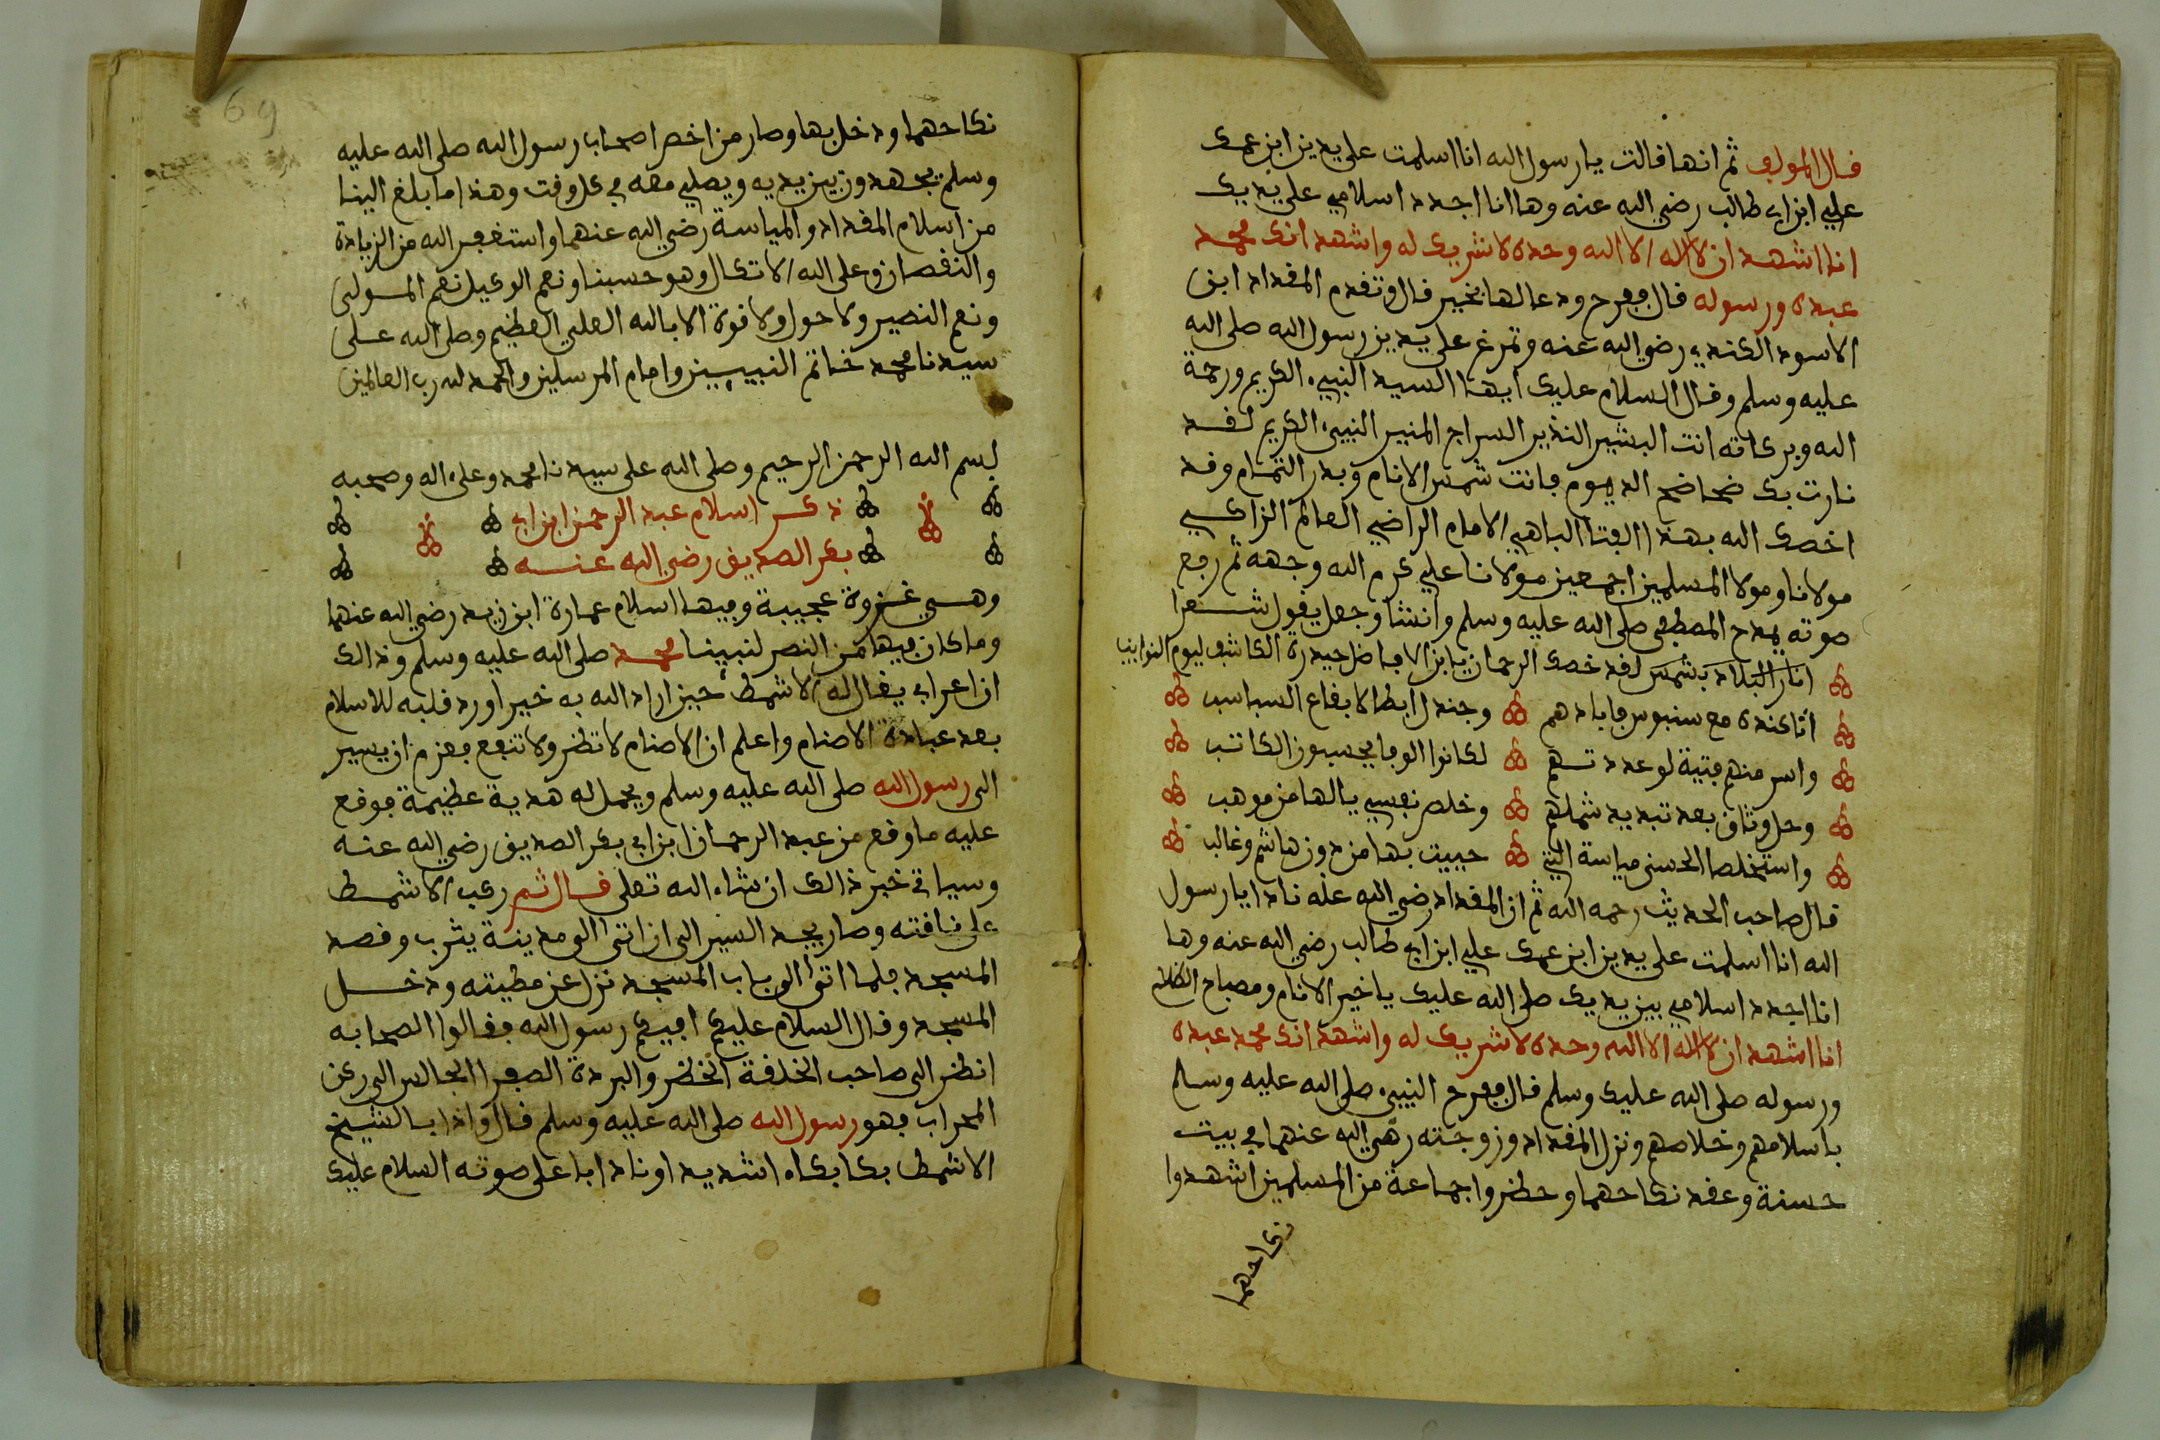 قال المولف ثم انها قالت يا رسول الله انا اسلمت على يدين ابن عمك
علي ابن ابي طالب رضي الله عنه وها انا اجدد اسلامي على يديك
انا اشهد ان لا اله الا الله وحده لا شريك له واشهد انك محمد
عبده ورسوله قال ففرح ودعا لها بخير قال وتقدم المقداد ابن
الاسود الكندي رضي الله عنه وتمرغ على يدين رسول الله صلى الله
عليه وسلم وقال السلام عليك ايها السيد النبيء الكريم ورحمة
الله وبركاته انت البشير النذير السراج المنير النبيء الكريم لقد
نارت بك ضحاضح الديوم فانت شمس الانام وبدر التمام وقد
اخصك الله بهذا الفتا الباهي الامام الراضي العالم الزاكي
مولانا ومولا المسلمين اجمعين مولانا علي كرم الله وجهه ثم رفع
صوته يمدح المصطفى صلى الله عليه وسلم وانشا وجعل يقول شعرا
انار البلاد بشمس لقد خصك الرحمان يا بن الافاضل حيدرة الكاشف ليوم النوايب
اتا كنده مع سنبوس فابادهم وجندل ابطالا بقاع السباسب
واسر منهم فتية لو عددتهم لكانوا الوفا يحسبون الكاتب
وحل وثاق بعد تبديد شملهم وخلص نفسي يا لها من موهب
واستخلصا الحسنى مياسة التي حبيت بها من دون هاشم وغالب
قال صاحب الحديث رحمه الله ثم ان المقداد رضي الله عنه نادا يا رسول
الله انا اسلمت على يدين ابن عمك علي ابن ابي طالب رضي الله عنه وها
انا اجدد اسلامي بين يديك صلى الله عليك يا خير الانام ومصباح الظلام
انا اشهد ان لا اله الا الله وحده لا شريك له واشهد انك محمد عبده
ورسوله صلى الله عليك وسلم قال ففرح النبيء صلى الله عليه وسلم
باسلامهم وخلاصهم ونزل المقداد وزوجته رضي الله عنهما في بيت
حسنة وعقد نكاحهما وحظروا جماعة من المسلمين اشهدوا
نكاحهما
69
نكاحهما ودخل بها وصار من اخص اصحاب رسول الله صلى الله عليه
وسلم يجهدون بين يديه ويصلي معه في كل وقت وهذا ما بلغ الينا
من اسلام المقداد والمياسة رضي الله عنهما واستغفر الله من الزيادة
والنقصان وعلى الله الاتكال وهو حسبنا ونعم الوكيل نعم المولى
ونعم النصير ولا حول ولا قوة الا بالله العلي العظيم وصلى الله على
سيدنا محمد خاتم النبيين وامام المرسلين والحمد لله رب العالمين
بسم الله الرحمن الرحيم وصلى الله على سيدنا محمد وعلى اله وصحبه
ذكر اسلام عبد الرحمن ابن ابي
بكر الصديق رضي الله عنه
وهي غزوة عجيبة وفيها اسلام عمارة ابن زيد رضي الله عنهما
وما كان فيها من النصر لنبينا محمد صلى الله عليه وسلم وذالك
ان اعرابي يقال له الاشمط حين اراد الله به خيرا ورد قلبه للاسلام
بعد عبادة الاصنام واعلم ان الاصنام لا تظر ولا تنفع فعزم ان يسير
الى رسول الله صلى الله عليه وسلم ويحمل له هدية عظيمة فوقع
عليه ما وقع من عبد الرحمان ابن ابي بكر الصديق رضي الله عنه
وسياتي خبر ذالك ان شاء الله تعلى قال ثم ركب الاشمط
على ناقته وصار يجد السير الى ان اتى الى مدينة يثرب وقصد
المسجد فلما اتى الى باب المسجد نزل عن مطيته ودخل
المسجد وقال السلام عليكم افيكم رسول الله فقالوا الصحابه
انظر الى صاحب الخلقة الخظر والبردة الصفرا الجالس الى ركن
المحراب فهو رسول الله صلى الله عليه وسلم قال واذا بالشيخ
الاشمط بكا بكاء شديدا ونادا باعلى صوته السلام عليك